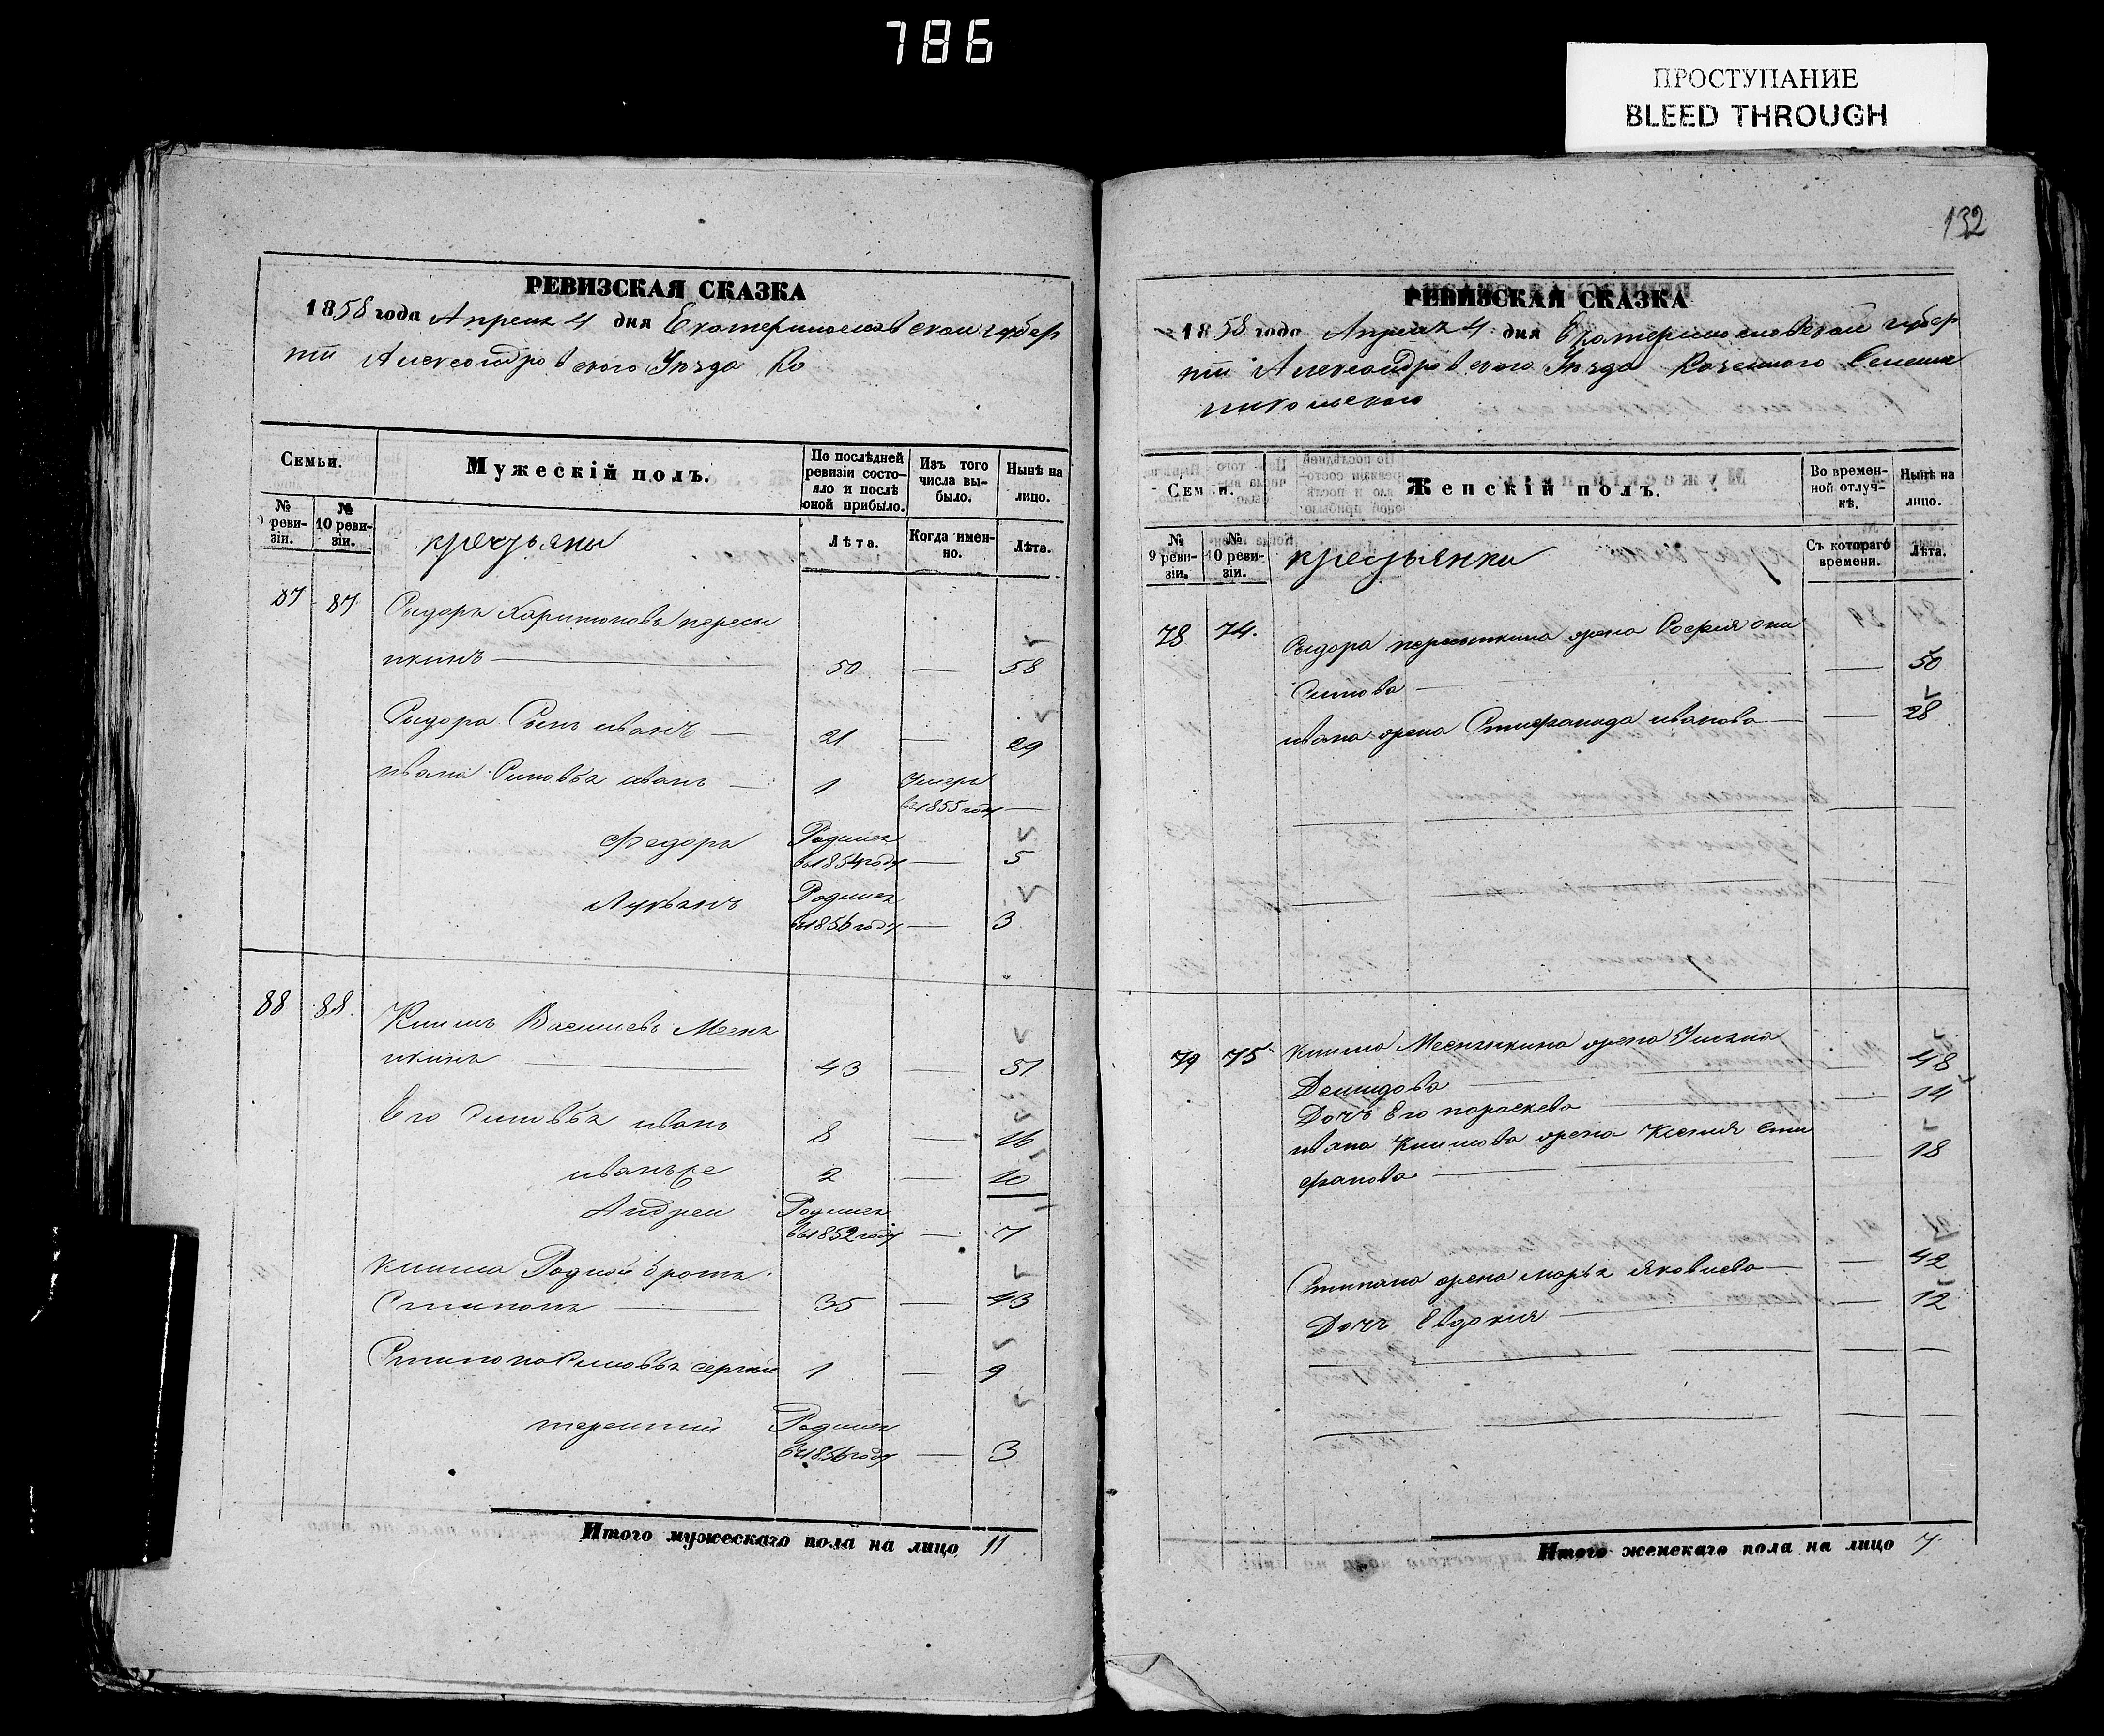 786
ПРОСТУПАНИЕ
BLEED THROUGH
РЕВИЗСКАЯ СКАЗКА
1858 года Апреля 4 дня Екатеринославской губер
нии Александровского Уезда Ка
Семьи.
Мужескій полъ.
По послѣдней
ревизіи состо-
яло и послѣ
оной прибыло.
Изъ того
числа вы-
было.
Нынѣ на
лицо.
№
9 реви-
зіи.
№
10 реви-
зіи.
крестьяне
Лѣта.
Когда имен-
но.
Лѣта.
87 87 Сыдоръ Харитоновъ
50 — 58
Сыдора Сынъ иванъ — 21 — 29
ивана Сыновья иванъ — 1 Умеръ
въ 1855 году —
Федоръ Родился
въ 1854 году — 5
Лукьянъ Родился
въ 1856 году — 3
88 88. Климъ Васильевъ
43 — 51
Его Сыновья иванъ 8 — 16
2 — 10
Андрей Родился
въ 1852 году — 7
Клима Родной братъ
Степанъ 35 — 43
Степана Сыновья сергей 1 — 9
терентий Родился
въ 1856 году — 3
Итого мужескаго пола на лицо 11
132
РЕВИЗСКАЯ СКАЗКА
1858 года Апреля 4 дня Екатеринославской губер
нии Александровского Уезда Казенного Селения
никольского
Семьи.
Женскій полъ.
Во времен-
ной отлуч-
кѣ.
Нынѣ на
лицо.
№
9 реви-
зіи.
№
10 реви-
зіи.
крестьянки
Съ котораго
времени.
Лѣта.
78 74. Сыдора жена София они
симова — — 50
ивана жена Стефанида иванова — — 28
79 75 клима жена Ульяна
Демидова — — 48
Дочь Его параскева — — 14
ивана Климова жена Ксения Сте
фанова — — 18
Степана жена марья яковлева — — 42
Дочь Евдокия — — 12
Итого женскаго пола на лицо 7